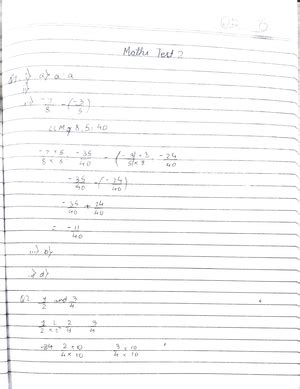 Maths Test 2
Q1. i) a) a
ii) -7/8 - (-3/5)
LCM of 8, 5 = 40
-7 × 5 / 8 × 5 -35/40 - ( -3 / 5 -24/40
-35/40 - (-24/40)
-35/40 + 24/40
= -11/40
iii) b)
d)
Q2. 1/2 and 3/4
1/2 × 2/2 2/4 3/4
2 × 10 / 4 × 10 3 × 10 / 4 × 10